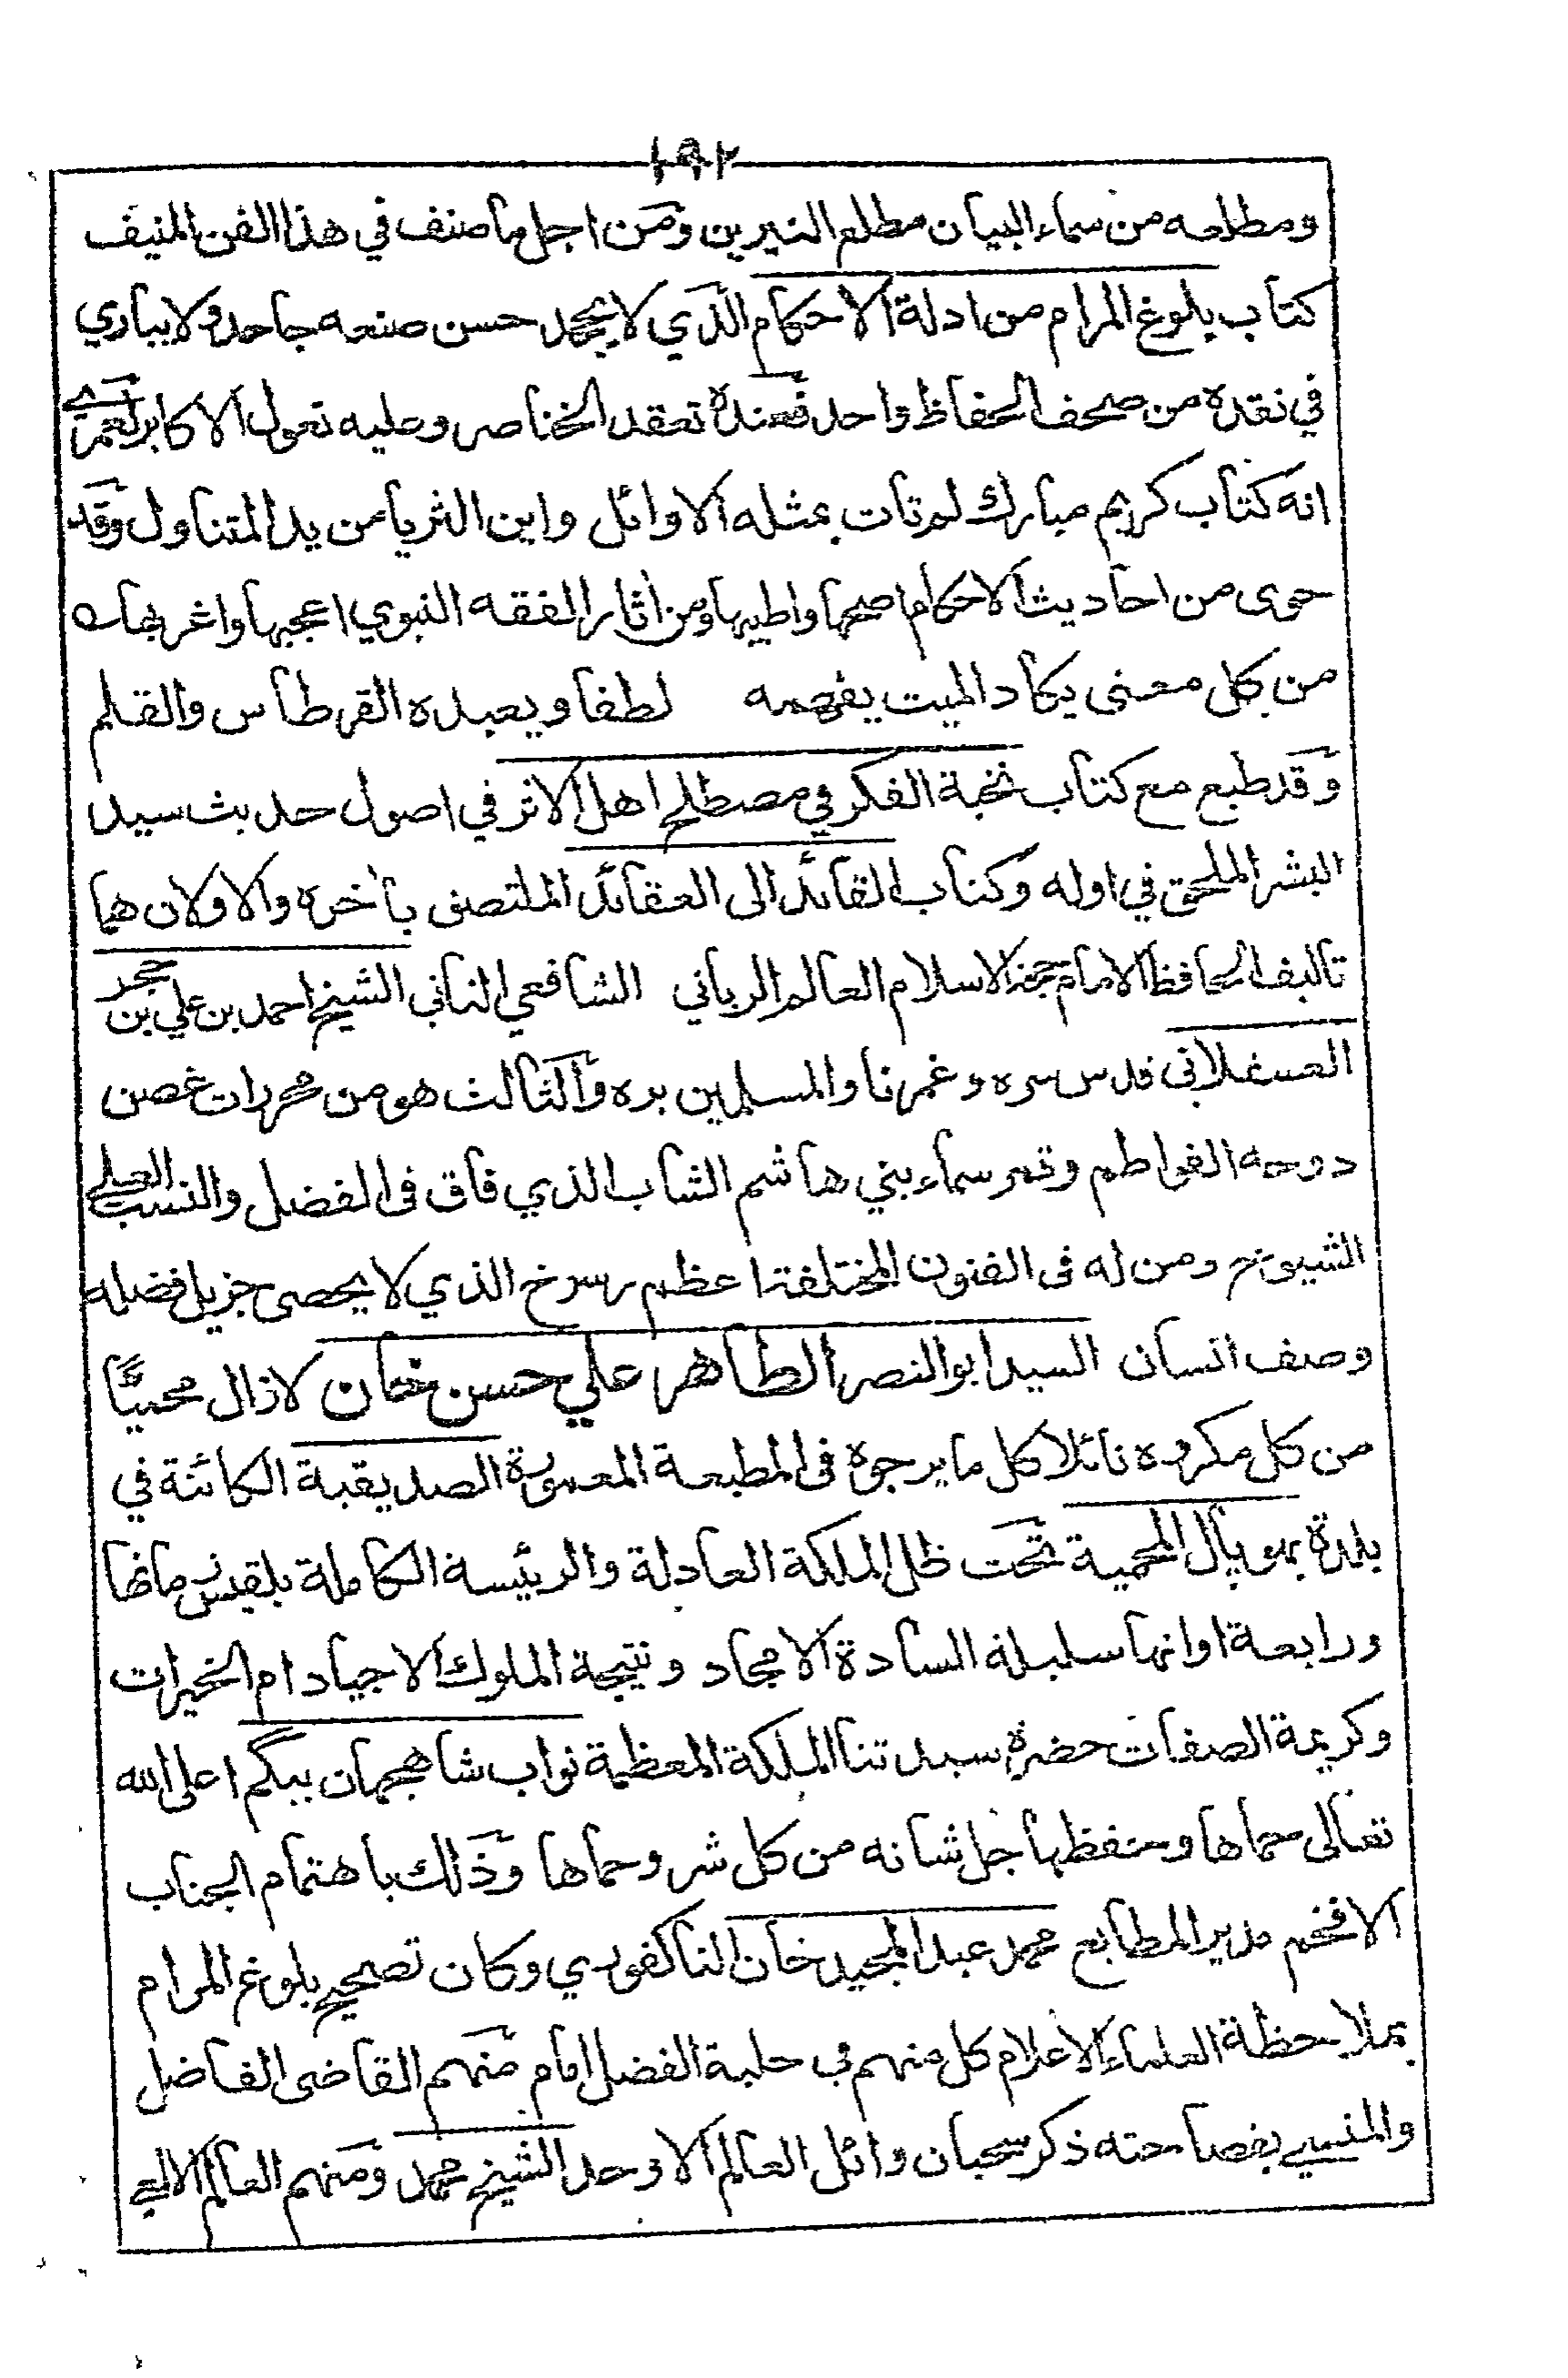 ١٩٢
ومطلعه من سماء البيان مطلع النيرين ومن اجل ما صنف في هذا الفن المنيف
كتاب بلوغ المرام من ادلة الاحكام الذي لا يجحد حسن صنعه جاحد ولا يباري
في نقده من صحف الحفاظ واحد فعنده تعقد الخناصر وعليه تعول الاكابر لعمري
انه كتاب كريم مبارك لم تات بمثله الاوائل واين الثريا من يد المتناول وقد
حوى من احاديث الاحكام اصحها واطيبها ومن اثار الفقه النبوي اعجبها واغربها
من كل معنى يكاد الميت يفهمه لطفا ويعبده القرطاس والقلم
وقد طبع مع كتاب نخبة الفكر في مصطلح اهل الاثر في اصول حديث سيد
البشر الملحق في اوله وكتاب القائد الى العقائد الملتصق بأخره والاولان هما
تاليف الحافظ الامام حجة الاسلام العالم الرباني الشافعي الثاني الشيخ احمد بن علي بن حجر
العسقلاني قدس سره وغمرنا والمسلمين بره والثالث هو من محررات غصن
دوحه الفواطم وقمر سماء بني هاشم الشاب الذي فاق فى الفضل والنسب العلي
الشيوخ ومن له فى الفنون المختلفة اعظم رسوخ الذي لا يحصى جزيل فضله
وصف انسان السيد ابو النصر الطاهر علي حسن خان لا زال محميًا
من كل مكروه نائلا كل ما يرجوه فى المطبعة المعمورة الصديقية الكائنة في
بلدة بهوپال المحمية تحت ظل الملكة العادلة والرئيسة الكاملة بلقيس زمانها
ورابعة اوانها سليلة السادة الامجاد ونتيجة الملوك الاجياد ام الخيرات
وكريمة الصفات حضرة سيدتنا الملكة المعظمة نواب شاهجهان بيگم اعلى الله
تعالى حماها وحفظها جل شانه من كل شر وحماها وذلك باهتمام الجناب
الافخم مدير المطابع محمد عبد المجيد خان الناكفوري وكان تصحيح بلوغ المرام
بملاحظة العلماء الاعلام كل منهم في حلبة الفضل امام منهم القاضى الفاضل
والمنسي بفصاحته ذكر سحبان وائل العالم الاوحد الشيخ محمد ومنهم العالم الالمعي